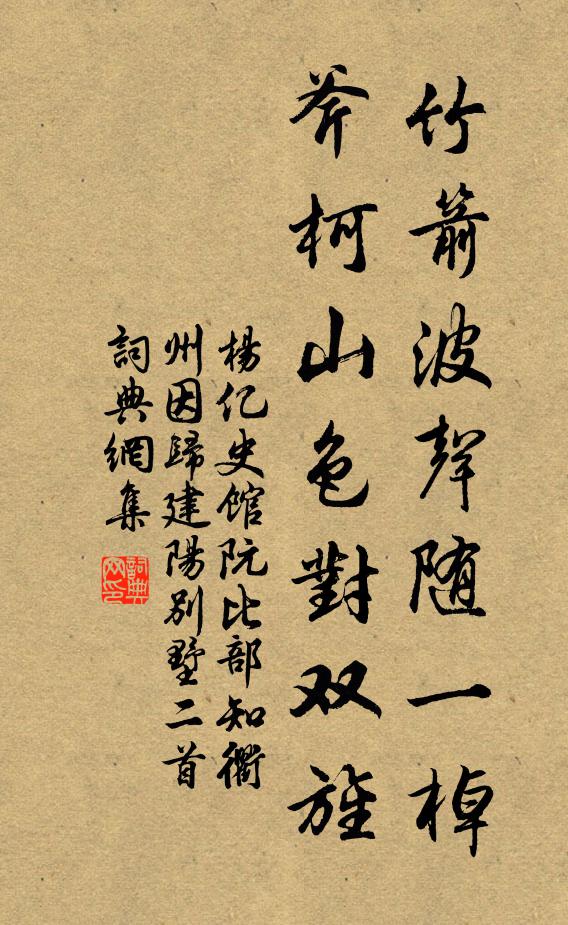 竹箭波聲随一棹
斧柯山色對双旌
楊亿史館阮比部知衢
州因歸建陽别墅二首
詞典網集
詞典网印